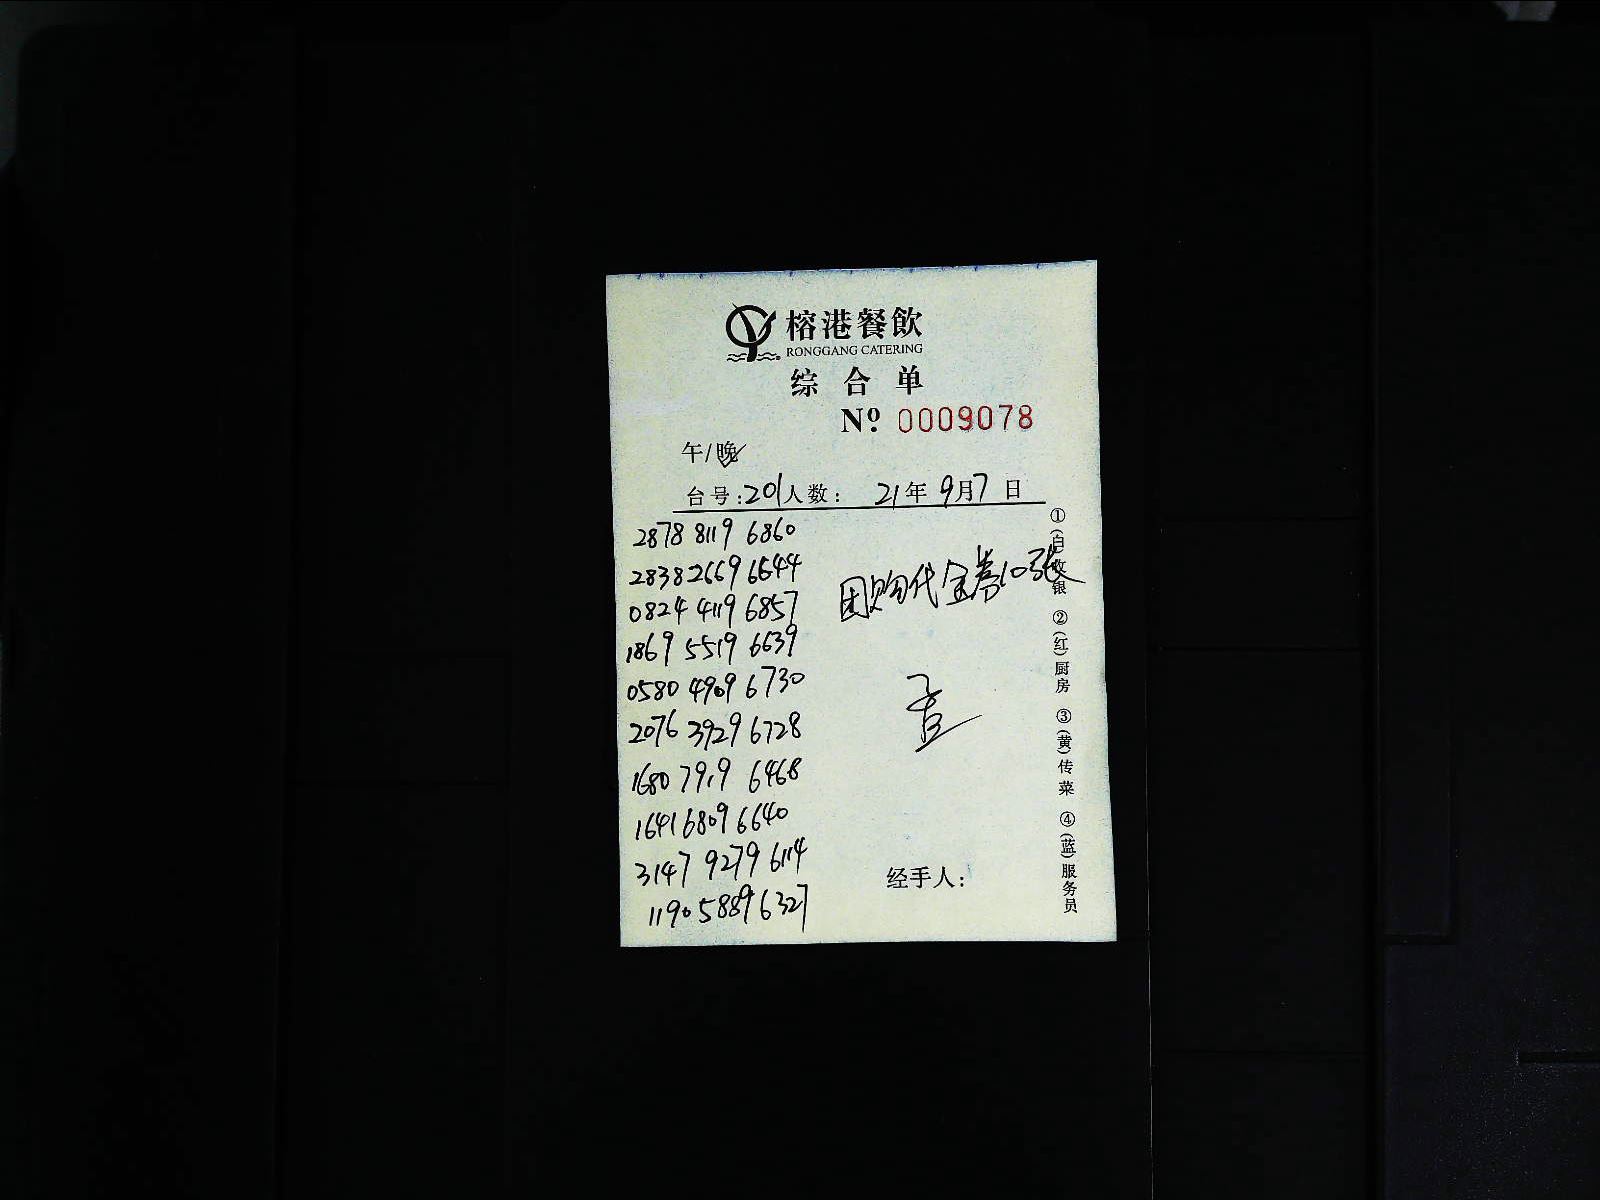 榕港餐飲
RONGGANG CATERING
综合单
Nº 0009078
午/晚
台号:201人数: 21年9月7日
2878 8119 6860
2838 2669 6644
0824 4119 6857
1869 5519 6639
0580 4909 6730
2076 3929 6728
1680 7919 6468
1641 6809 6640
3147 9279 6114
1190 5889 6327
团购代金券10张
经手人:
①(白)收银 ②(红)厨房 ③(黄)传菜 ④(蓝)服务员